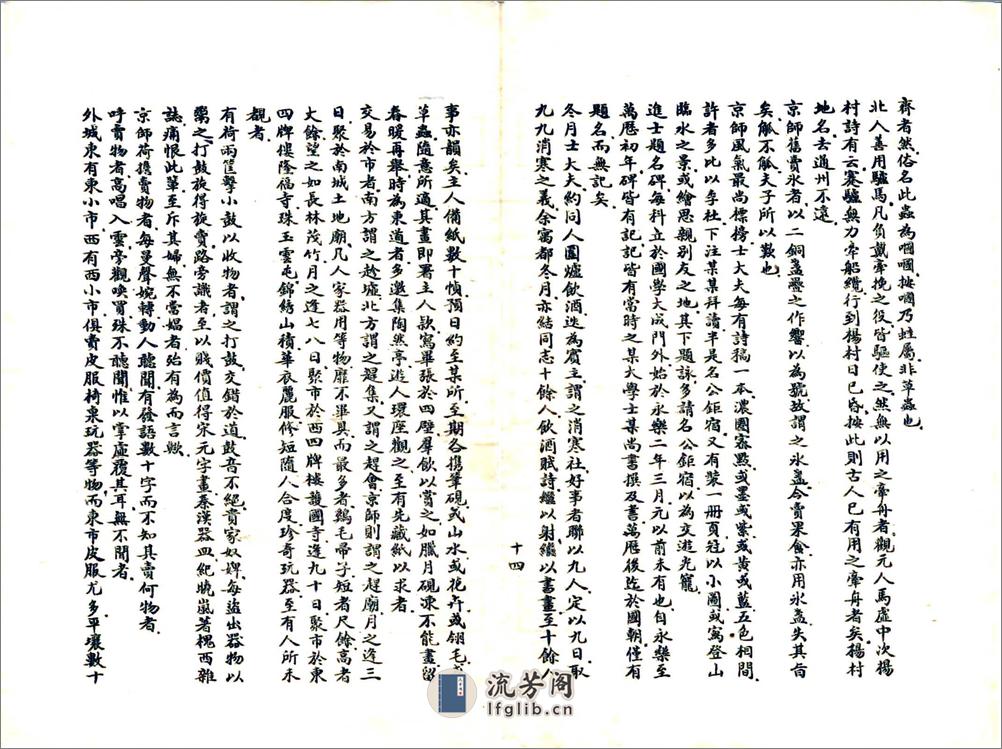 齊者然俗名此蟲為嘓嘓按嘓乃蛙屬非草蟲也
北人善用驢馬凡負戴牽挽之役皆驅使之然無以用之牽舟者觀元人馬虛中次楊
村詩有云蹇驢無力牽船纜行到楊村日已昏按此則古人已有用之牽舟者矣楊村
地名去通州不遠
京師舊賣氷者以二銅盞疊之作響以為號故謂之氷盞今賣果食亦用氷盞失其旨
矣觚不觚夫子所以歎也
京師風氣最尚標榜士大夫每有詩稿一本濃圈密點或墨或紫或黃或藍五色相間
許者多比以李杜下注某某拜讀半是名公鉅宿又有裝一冊頁冠以小圖或寫登山
臨水之景或繪思親別友之地其下題詠多請名公鉅宿以為交遊光寵
進士題名碑每科立於國學大成門外始於永樂二年三月元以前未有也自永樂至
萬歷初年碑皆有記記皆有當時之某大學士某尚書撰及書萬歷後迄於國朝僅有
題名而無記矣
冬月士大夫約同人圍爐飲酒迭為賓主謂之消寒社好事者聯以九人定以九日取
九九消寒之義余寓都冬月亦結同志十餘人飲酒賦詩繼以射繼以書畫至十餘人
十四
事亦韻矣主人備紙數十幀預日約至某所至期各攜筆硯或山水或花卉或翎毛或
草蟲隨意所適其畫即署主人欵寫畢張於四壁羣飲以賞之如臘月硯凍不能畫留
春暖再舉時為東道者多邀集陶然亭遊人環座觀之至有先藏紙以求者
交易於市者南方謂之趁墟北方謂之趕集又謂之趕會京師則謂之趕廟月之逢三
日聚於南城土地廟凡人家器用等物靡不畢具而最多者鷄毛帚子短者尺餘高者
大餘望之如長林茂竹月之逢七八日聚市於西四牌樓護國寺逢九十日聚市於東
四牌樓隆福寺珠玉雲屯錦綉山積華衣麗服修短隨人合度珍奇玩器至有人所未
覩者
有荷兩筐擊小鼓以收物者謂之打鼓交錯於道鼓音不絕貴家奴婢每盜出器物以
鬻之打鼓旋得旋賣路旁識者至以賤價值得宋元字畫秦漢器皿紀曉嵐著槐西雜
誌痛恨此輩至斥其婦無不當娼者殆有為而言歟
京師荷擔賣物者每曼聲婉轉動人聽聞有發語數十字而不知其賣何物者
呼賣物者高唱入雲旁觀喚買殊不聽聞惟以掌虛覆其耳無不聞者
外城東有東小市西有西小市俱賣皮服椅桌玩器等物而東市皮服尤多平壤數十
流芳阁
lfglib.cn